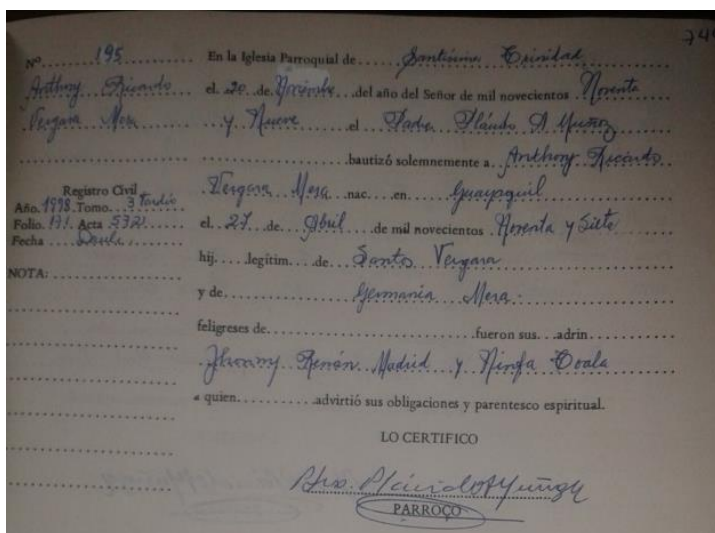 749
Nº 195
Anthony Ricardo
Vergara Mesa
Registro Civil
Año. 1998 Tomo. 3 Tardío
Folio. 171 Acta 532
Fecha Daule
NOTA:
En la Iglesia Parroquial de Santísima Trinidad
el 20 de Noviembre del año del Señor de mil novecientos Noventa
y Nueve el Padre Plácido A Muñoz
bautizó solemnemente a Anthony Ricardo
Vergara Mesa nac. en Guayaquil
el 27 de Abril de mil novecientos Noventa y Siete
hij. legítim. de Santos Vergara
y de Germania Mesa.
feligreses de fueron sus adrin
Jhonny Renán Madrid y Ninfa Coala
a quien advirtió sus obligaciones y parentesco espiritual.
LO CERTIFICO
PARROCO